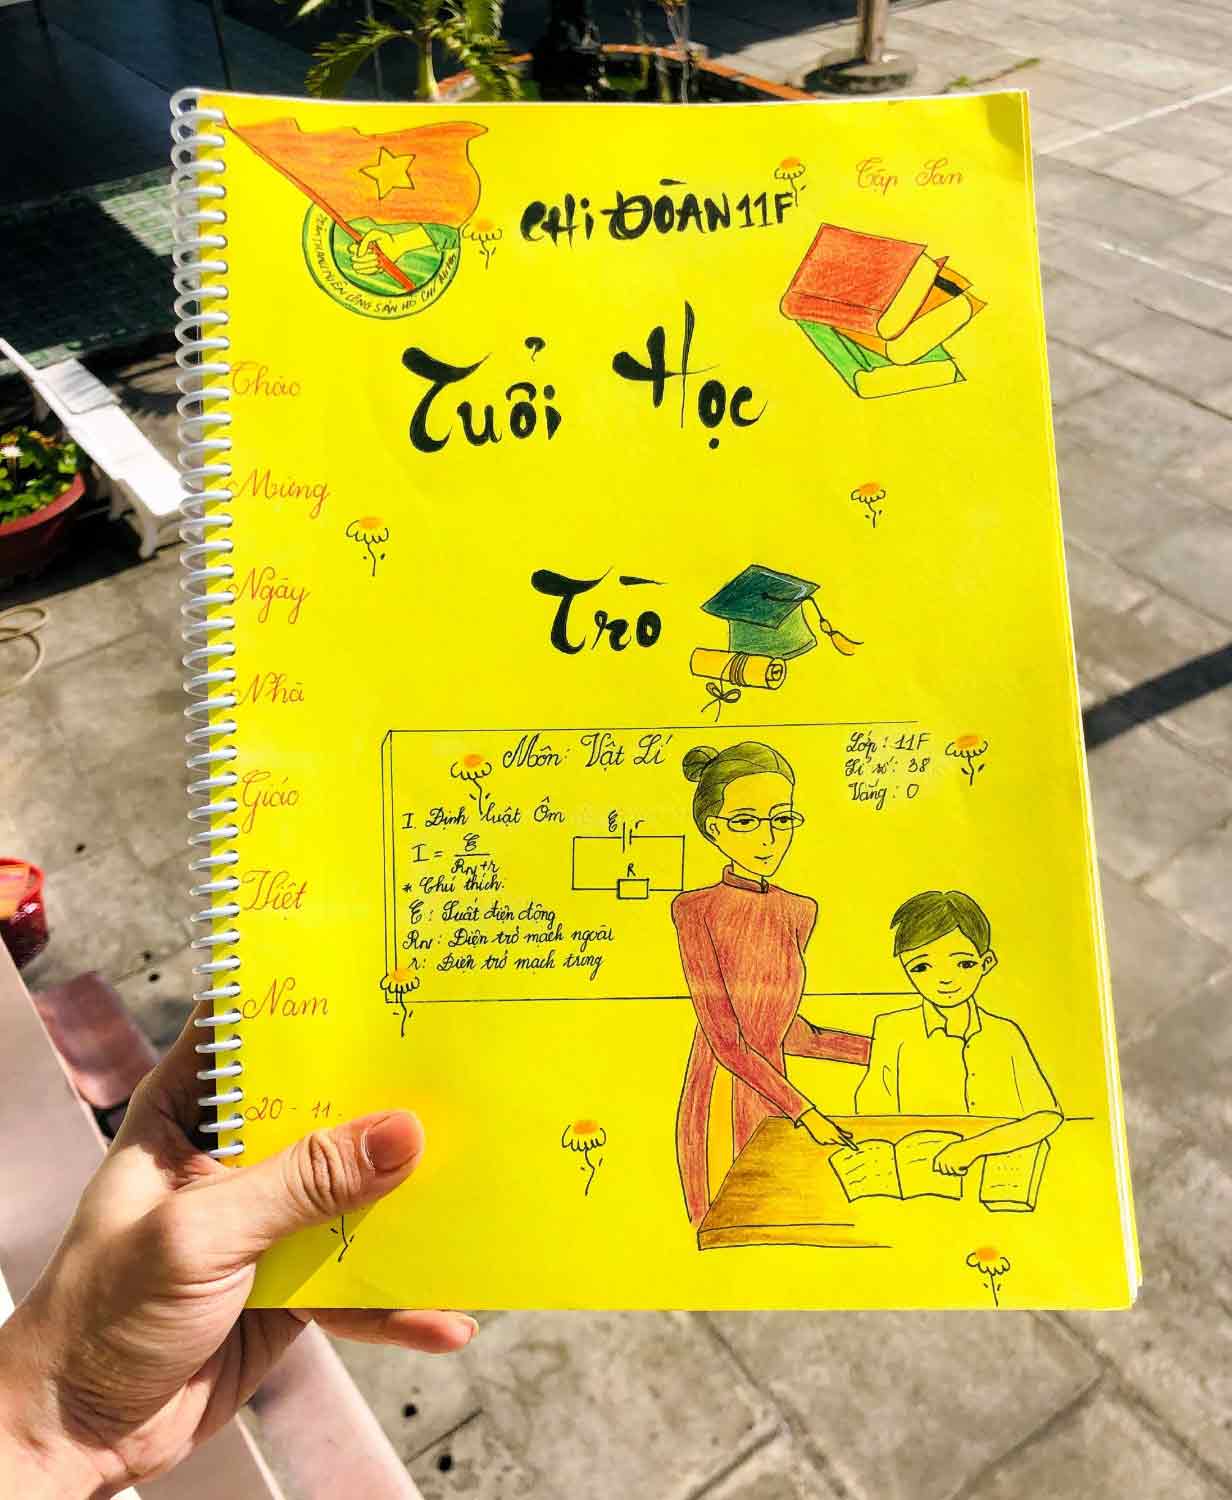 Tập San
CHI ĐOÀN 11F
ĐOÀN THANH NIÊN CỘNG SẢN HỒ CHÍ MINH
Tuổi Học
Trò
Chào
Mừng
Ngày
Nhà
Giáo
Việt
Nam
20 - 11.
Môn: Vật Lí
Lớp: 11F
Sỉ số: 38
Vắng: 0
I. Định luật Ôm
I = E / RN + r
* Chú thích:
E: Suất điện động
RN: Điện trở mạch ngoài
r: Điện trở mạch trong
E r
R